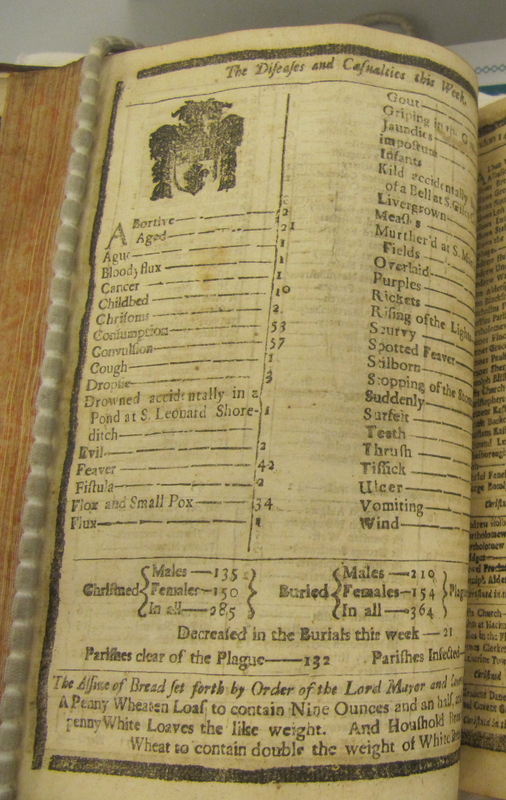 The Diseases and Casualties this Week.
ABortive 2
Aged 21
Ague 1
Bloody flux 1
Cancer 1
Childbed 10
Chrisoms 2
Consumption 53
Convulsion 57
Cough 1
Dropsie 3
Drowned accidentally in a
Pond at S. Leonard Shore- 1
ditch
Evil 2
Feaver 42
Fistula 2
Flox and Small Pox 34
Flux 1
Gout
Griping in the G
Jaundies
Impostum
Infants
Kild accidentally
of a Bell at S.
Livergrown
Measles
Murther'd at S.
Fields
Overlaid
Purples
Rickets
Rising of the Lights
Scurvy
Spotted Feaver
Stilborn
Stopping of the Stom
Suddenly
Surfeit
Teeth
Thrush
Tissick
Ulcer
Vomiting
Wind
Christned Males — 135 Females — 150 In all — 285 Buried Males — 210 Females — 154 In all — 364 Plag
Decreased in the Burials this week — 21
Parishes clear of the Plague — 132 Parishes Infected
The Assise of Bread set forth by Order of the Lord Mayor and Court
A Penny Wheaten Loaf to contain Nine Ounces and an half,
penny White Loaves the like weight. And Houshold
Wheat to contain double the weight of White